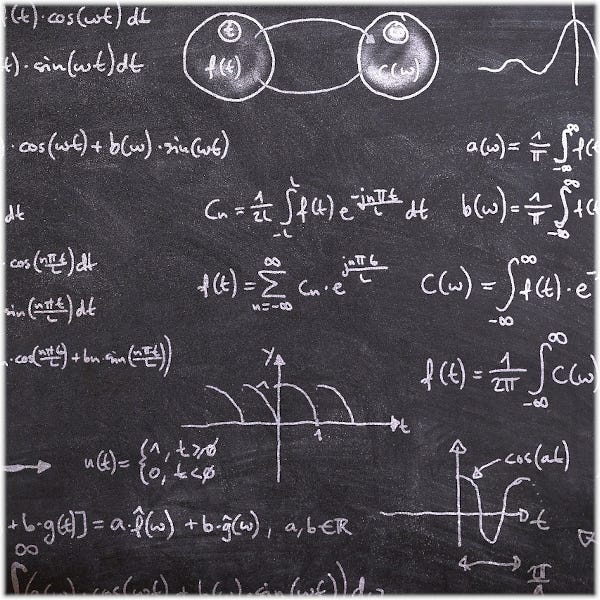 (t)·cos(ωt) dt
f(t) C(ω)
t)·sin(ωt)dt
·cos(ωt)+b(ω)·sin(ωt)
a(ω)= 1/π ∫_{-∞}^{∞} f(t
dt
Cn = 1/2L ∫_{-L}^{L} f(t) e^{-jnπt/L} dt
b(ω)= 1/π ∫_{-∞}^{∞} f(t
cos(nπt/L)dt
f(t)= ∑_{n=-∞}^{∞} Cn·e^{jnπt/L}
C(ω) = ∫_{-∞}^{∞} f(t)·e^-
sin(nπt/L)dt
·cos(nπt/L)+bn·sin(nπt/L))
f(t)= 1/2π ∫_{-∞}^{∞} C(ω)
y
1
t
u(t)= {1, t≥0
0, t<0
cos(at)
t
+b·g(t)]=a·f̂(ω) +b·ĝ(ω), a,b∈ℝ
π
∞
∫(a(ω)·cos(ωt)+b(ω)·sin(ωt))dω